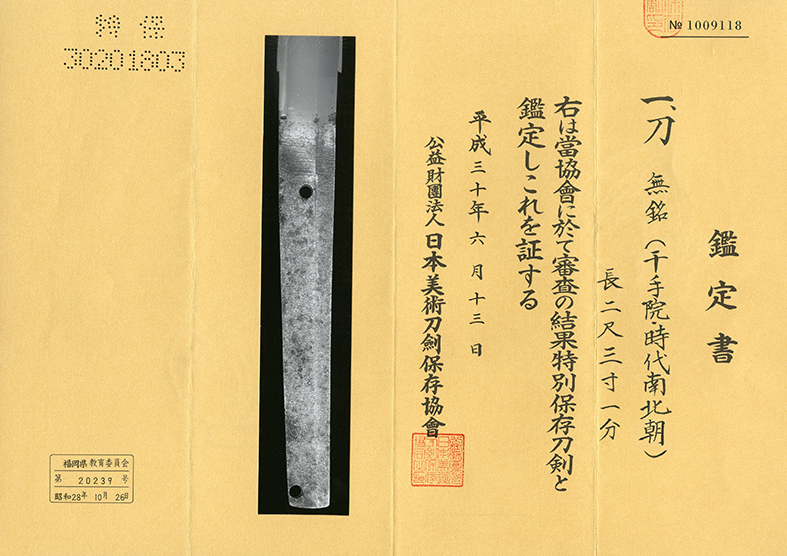 № 1009118
鑑定書
一、刀 無銘(千手院・時代南北朝)
長二尺三寸一分
右は當協會に於て審査の結果特別保存刀剣と
鑑定しこれを証する
平成三十年六月十三日
公益財團法人日本美術刀劍保存協會
特保
30201803
福岡県教育委員会
第 20239 号
昭和28年 10月 26日